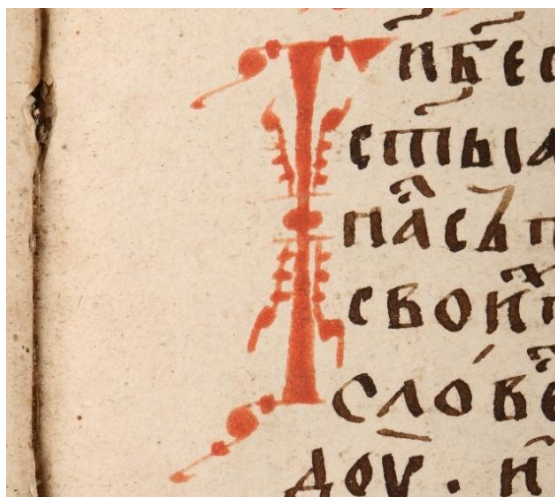 І нб҃ес
ст҃ыꙗ
насъ п
свои
сло́ве
доу. н